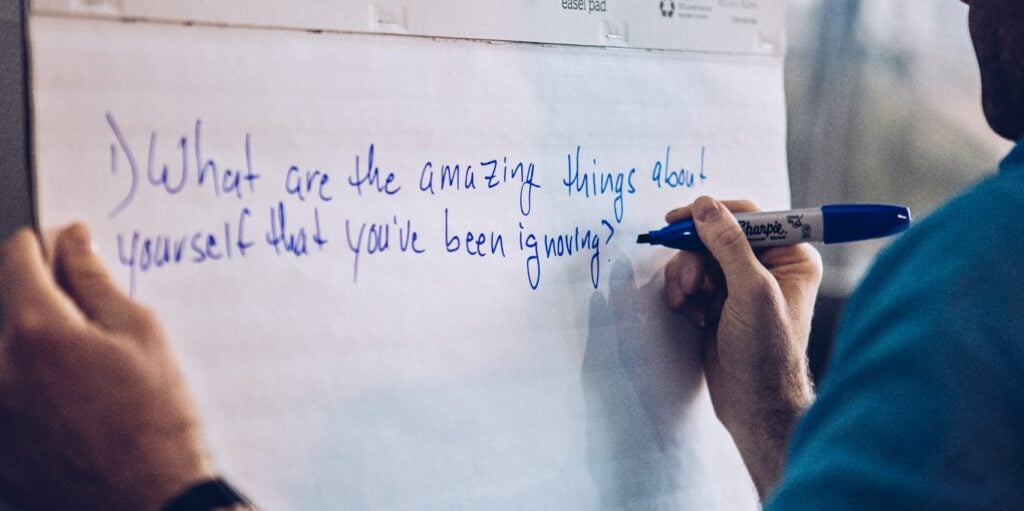 easel pad
1) What are the amazing things about
yourself that you've been ignoring?
Sharpie